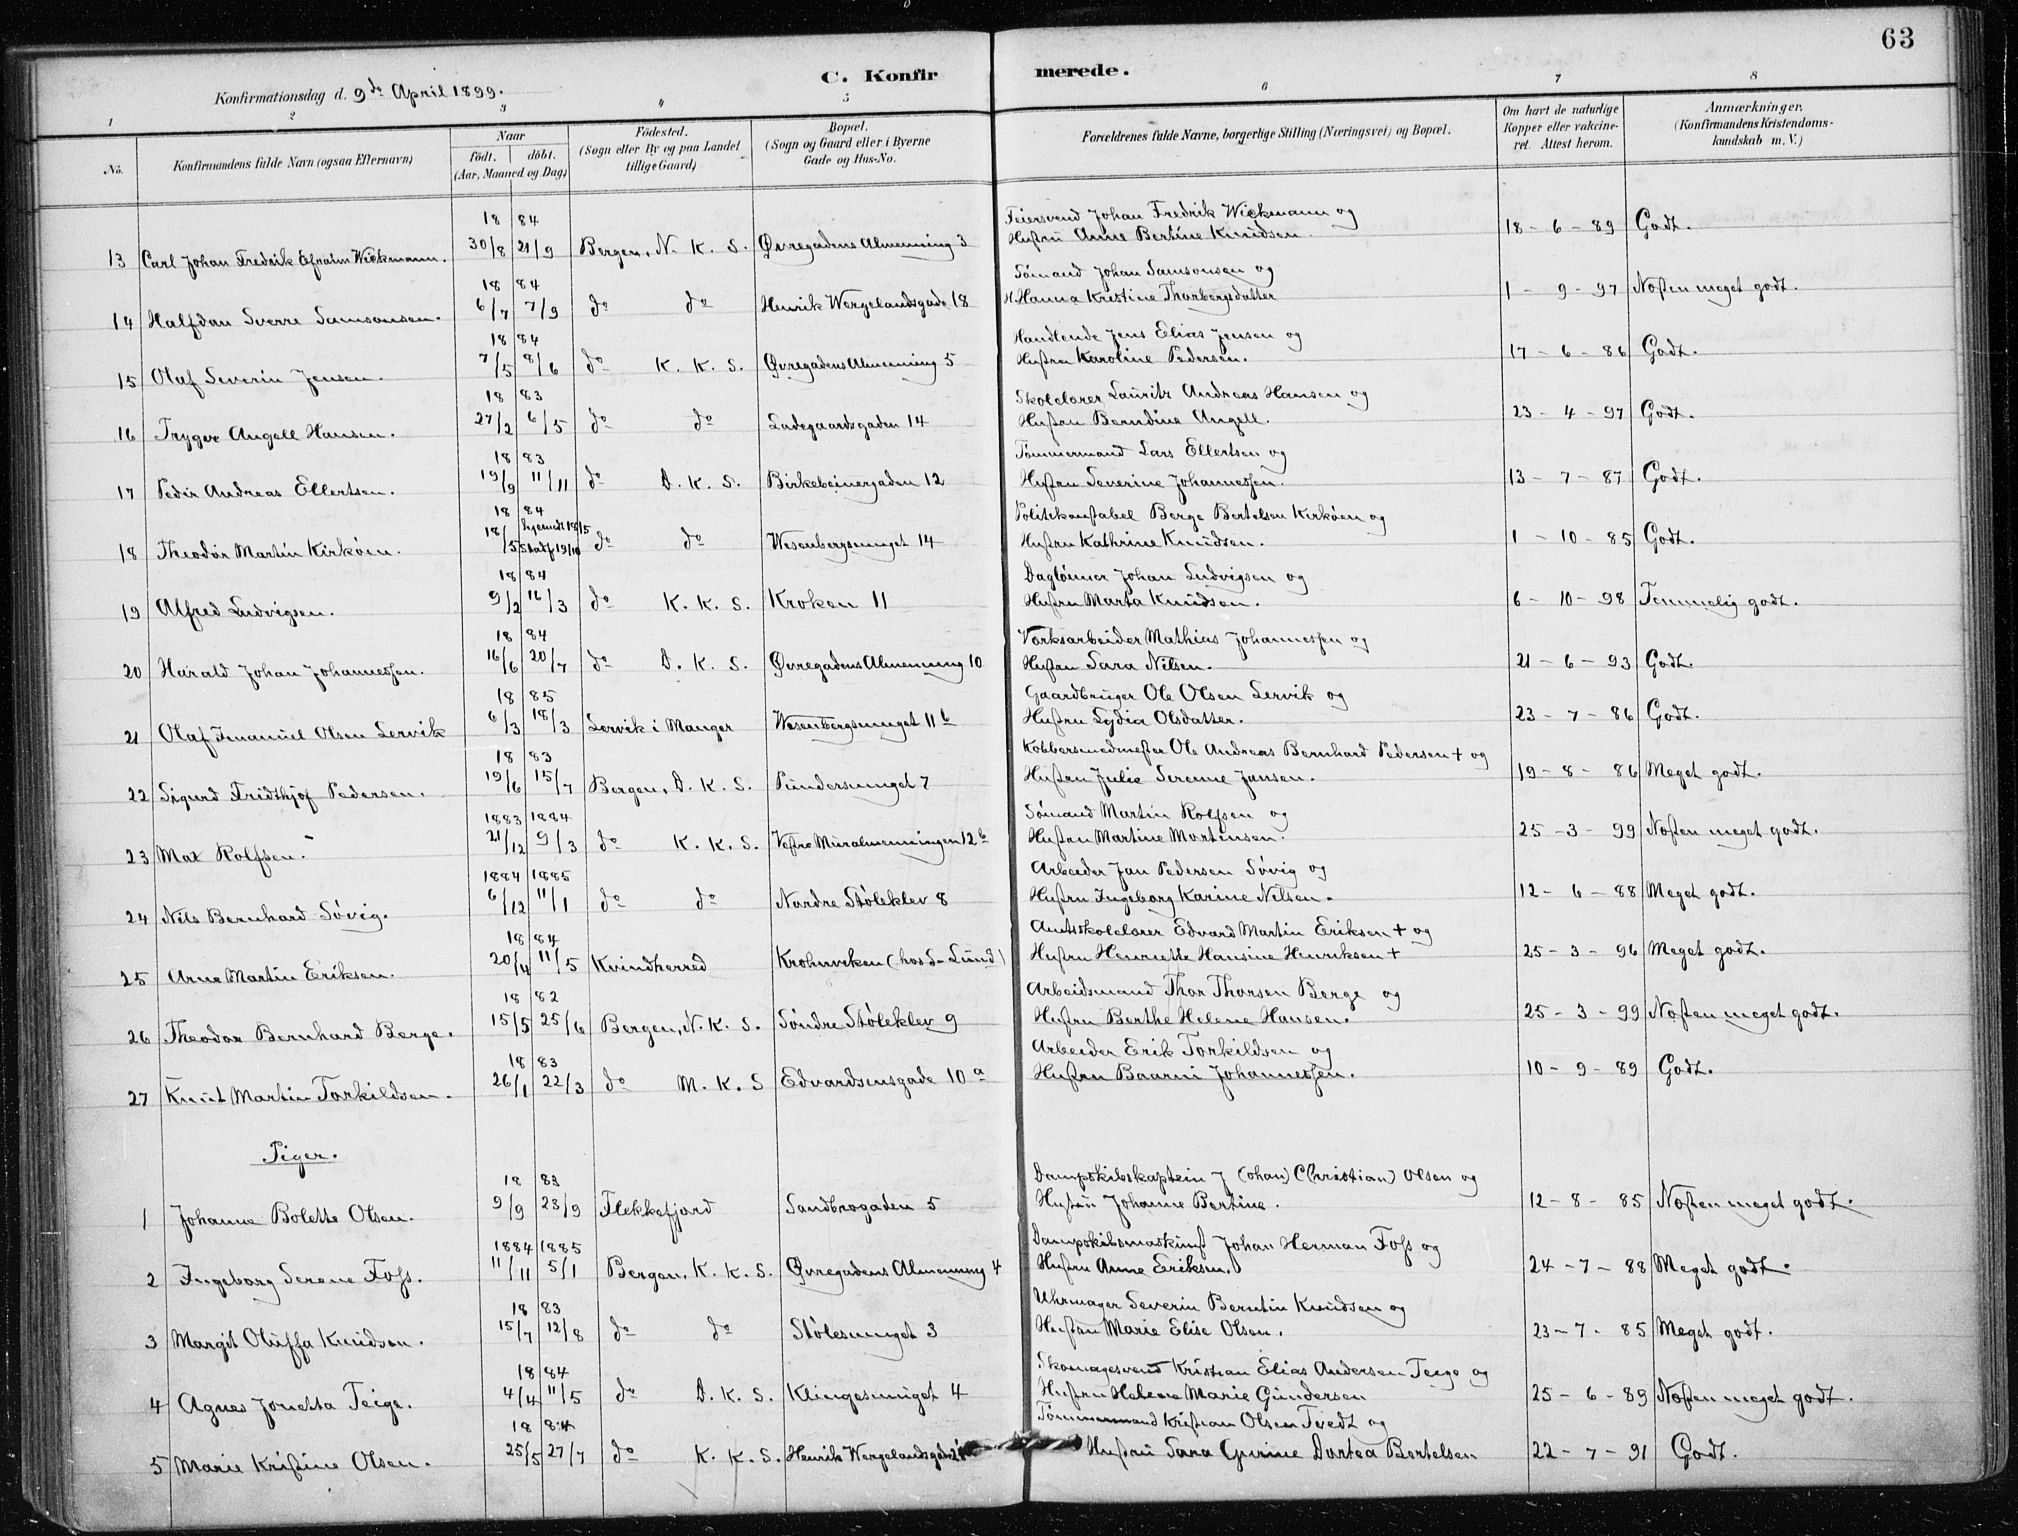 63
C. Konfir merede.
Konfirmationsdag d. 9de April 1899.
1 2 3 4 5 6 7 8
No. Konfirmandens fulde Navn (ogsaa Efternavn) Naar födt. döbt. (Aar, Maaned og Dag) Födested. (Sogn eller By og paa Landet tillige Gaard) Bopæl. (Sogn og Gaard eller i Byerne Gade og Hus-No. Forældrenes fulde Navne, borgerlige Stilling (Næringsvei) og Bopæl. Om havt de naturlige Kopper eller vakcineret. Attest herom. Anmærkninger. (Konfirmandens Kristendomskundskab m. V.)
18 84 Feiersvend Johan Fredrik Wickmann og
13 Carl Johan Fredrik Efraim Wickmann. 30/8 21/9 Bergen, N. K. S. Øvregadens Almenning 3 Hustru Anne Bertine Knudsen. 18-6-89 Godt.
18 84 Sømand Johan Samsonsen og
14 Halfdan Sverre Samsonsen. 6/7 7/9 do do Henrik Wergelandsgade 18 H. Hanna Kristine Thorbergsdatter 1-9-97 Næsten meget godt.
18 84 Handlende Jens Elias Jensen og
15 Olaf Severin Jensen. 7/5 8/6 do K. K. S. Øvregadens Almenning 5 Hustru Karoline Pedersen. 17-6-86 Godt.
18 83 Skolelærer Lauritz Andreas Hansen og
16 Trygve Angell Hansen. 27/2 6/5 do do Ladegaardsgaden 14 Hustru Berndine Angell. 23-4-97 Godt.
18 83 Tømmermand Lars Ellertsen og
17 Peder Andreas Ellertsen. 19/9 11/11 do D. K. S. Birkebeinergaden 12 Hustru Severine Johannessen. 13-7-87 Godt.
18 84 Politikonstabel Berge Bertelsen Kirkøen og
18 Theodor Martin Kirkøen. 18/5 18/5 19/10 do do Wesenbergsmuget 14 Hustru Kathrine Knudsen. 1-10-85 Godt.
18 84 Daglønner Johan Ludvigsen og
19 Alfred Ludvigsen. 9/2 16/3 do K. K. S. Kroken 11 Hustru Marta Knudsen. 6-10-98 Temmelig godt.
18 84 Værksarbeider Mathias Johannessen og
20 Harald Johan Johannessen. 16/6 20/7 do D. K. S. Øvregadens Almenning 10 Hustru Sara Nilsen. 21-6-93 Godt.
18 85 Gaardbruger Ole Olsen Lervik og
21 Olaf Emanuel Olsen Lervik 6/3 18/3 Lervik i Manger Wesenbergsmuget 11b Hustru Lydia Olsdatter. 23-7-86 Godt.
18 83 Kobbersmedmester Ole Andreas Bernhard Pedersen + og
22 Sigurd Fridthjof Pedersen. 19/6 15/7 Bergen, D. K. S. Pundersmuget 7 Hustru Julie Serene Jansen. 19-8-86 Meget godt.
1883 1884 Sømand Martin Rolfsen og
23 Max Rolfsen. 21/12 9/3 do K. K. S. Vestre Muralmenningen 12b Hustru Martine Mortensen. 25-3-99 Næsten meget godt.
1884 1885 Arbeider Jan Pedersen Søvig og
24 Nils Bernhard Søvig. 6/12 11/1 do do Nordre Stølekleiv 8 Hustru Ingeborg Karine Nilsen. 12-6-88 Meget godt.
18 84 Amtsskolelærer Edvard Martin Eriksen + og
25 Arne Martin Eriksen. 20/4 11/5 Kvindherred Krohnviken (hos S. Lund) Hustru Henriette Hansine Henriksen + 25-3-96 Meget godt.
18 82 Arbeidsmand Thor Thorsen Berge og
26 Theodor Bernhard Berge. 15/5 25/6 Bergen, N. K. S. Søndre Stølekleiv 9 Hustru Berthe Helene Hansen. 25-3-99 Næsten meget godt.
18 83 Arbeider Erik Torkildsen og
27 Knut Martin Torkildsen. 26/1 22/3 do M. K. S Edvardsensgade 10a Hustru Baarni Johannessen. 10-9-89 Godt.
Piger.
18 83 Dampskibskaptein J(ohan) C(hristian) Olsen og
1 Johanne Bolette Olsen. 9/9 23/9 Flekkefjord Sandbrogaden 5 Hustru Johanne Bertine. 12-8-85 Næsten meget godt.
1884 1885 Dampskibsmaskinist Johan Herman Foss og
2 Ingeborg Serene Foss. 11/11 5/1 Bergen, K. K. S. Øvregadens Almenning 4 Hustru Anne Eriksen. 24-7-88 Meget godt.
18 83 Uhrmager Severin Berntin Knudsen og
3 Margit Oluffa Knudsen. 15/7 12/8 do do Stølesmuget 3 Hustru Marie Elise Olsen. 23-7-85 Meget godt.
18 84 Skomagesvend Kristian Elias Andersen Teige og
4 Agnes Jonetta Teige. 4/4 11/5 do D. K. S. Klingesmuget 4 Hustru Helene Marie Gundersen 25-6-89 Næsten meget godt.
18 84 Tømmermand Kristian Olsen Tvedt og
5 Marie Kristine Olsen. 25/5 27/7 do K. K. S. Henrik Wergelandsgade Hustru Sara Gurine Dortea Bertelsen 22-7-91 Godt.